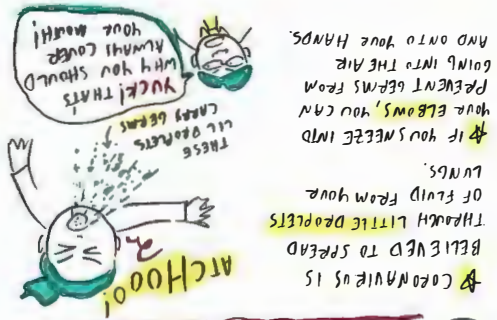 ☆ CORONAVIRUS IS
BELIEVED TO SPREAD
THROUGH LITTLE DROPLETS
OF FLUID FROM YOUR
LUNGS.
☆ IF YOU SNEEZE INTO
YOUR ELBOWS, YOU CAN
PREVENT GERMS FROM
GOING INTO THE AIR
AND ONTO YOUR HANDS.
ATCHOOO!
THESE
LIL DROPLETS
CARRY GERMS
YUCK! THAT'S
WHY YOU SHOULD
ALWAYS COVER
YOUR MOUTH!